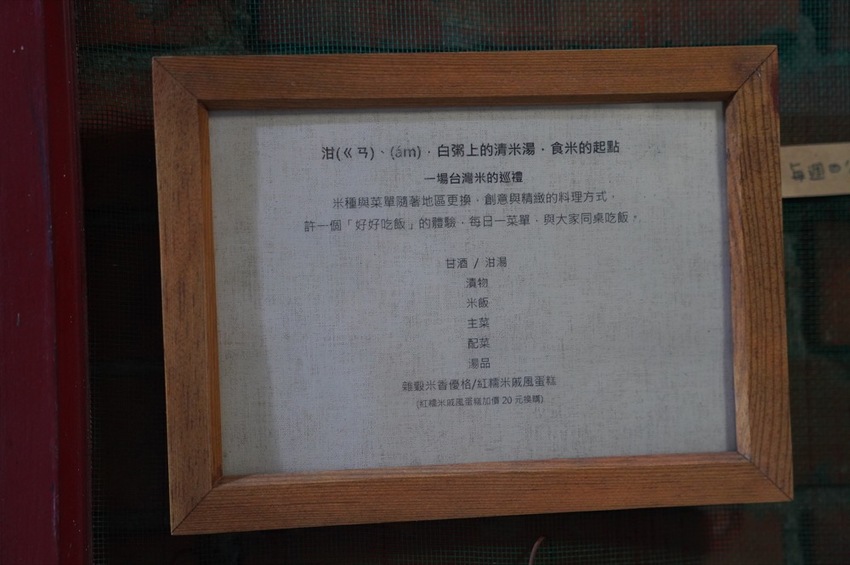 泔(ㄍㄢ)、(ám)．白粥上的清米湯．食米的起點
一場台灣米的巡禮
米種與菜單隨著地區更換，創意與精緻的料理方式，
許一個「好好吃飯」的體驗，每日一菜單，與大家同桌吃飯。
甘酒 / 泔湯
漬物
米飯
主菜
配菜
湯品
雜穀米香優格/紅糯米戚風蛋糕
(紅糯米戚風蛋糕加價 20 元換購)